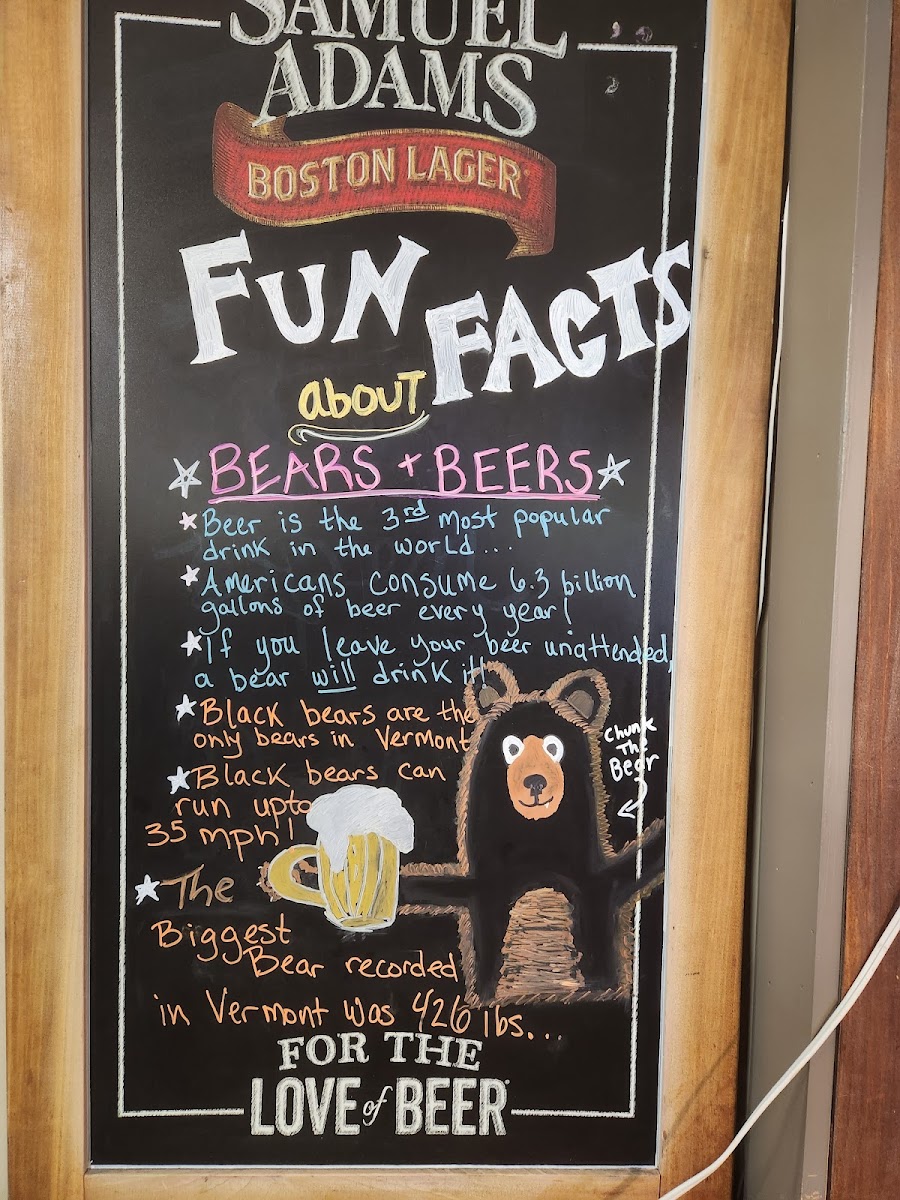 SAMUEL
ADAMS
BOSTON LAGER
FUN
FACTS
about
BEARS + BEERS
Beer is the 3rd most popular
drink in the world...
Americans consume 6.3 billion
gallons of beer every year!
If you leave your beer unattended,
a bear will drink it!!
Black bears are the
only bears in Vermont
Chunk
The
Bear
Black bears can
run upto
35 mph!
The
Biggest
Bear recorded
in Vermont was 426 lbs...
FOR THE
LOVE of BEER